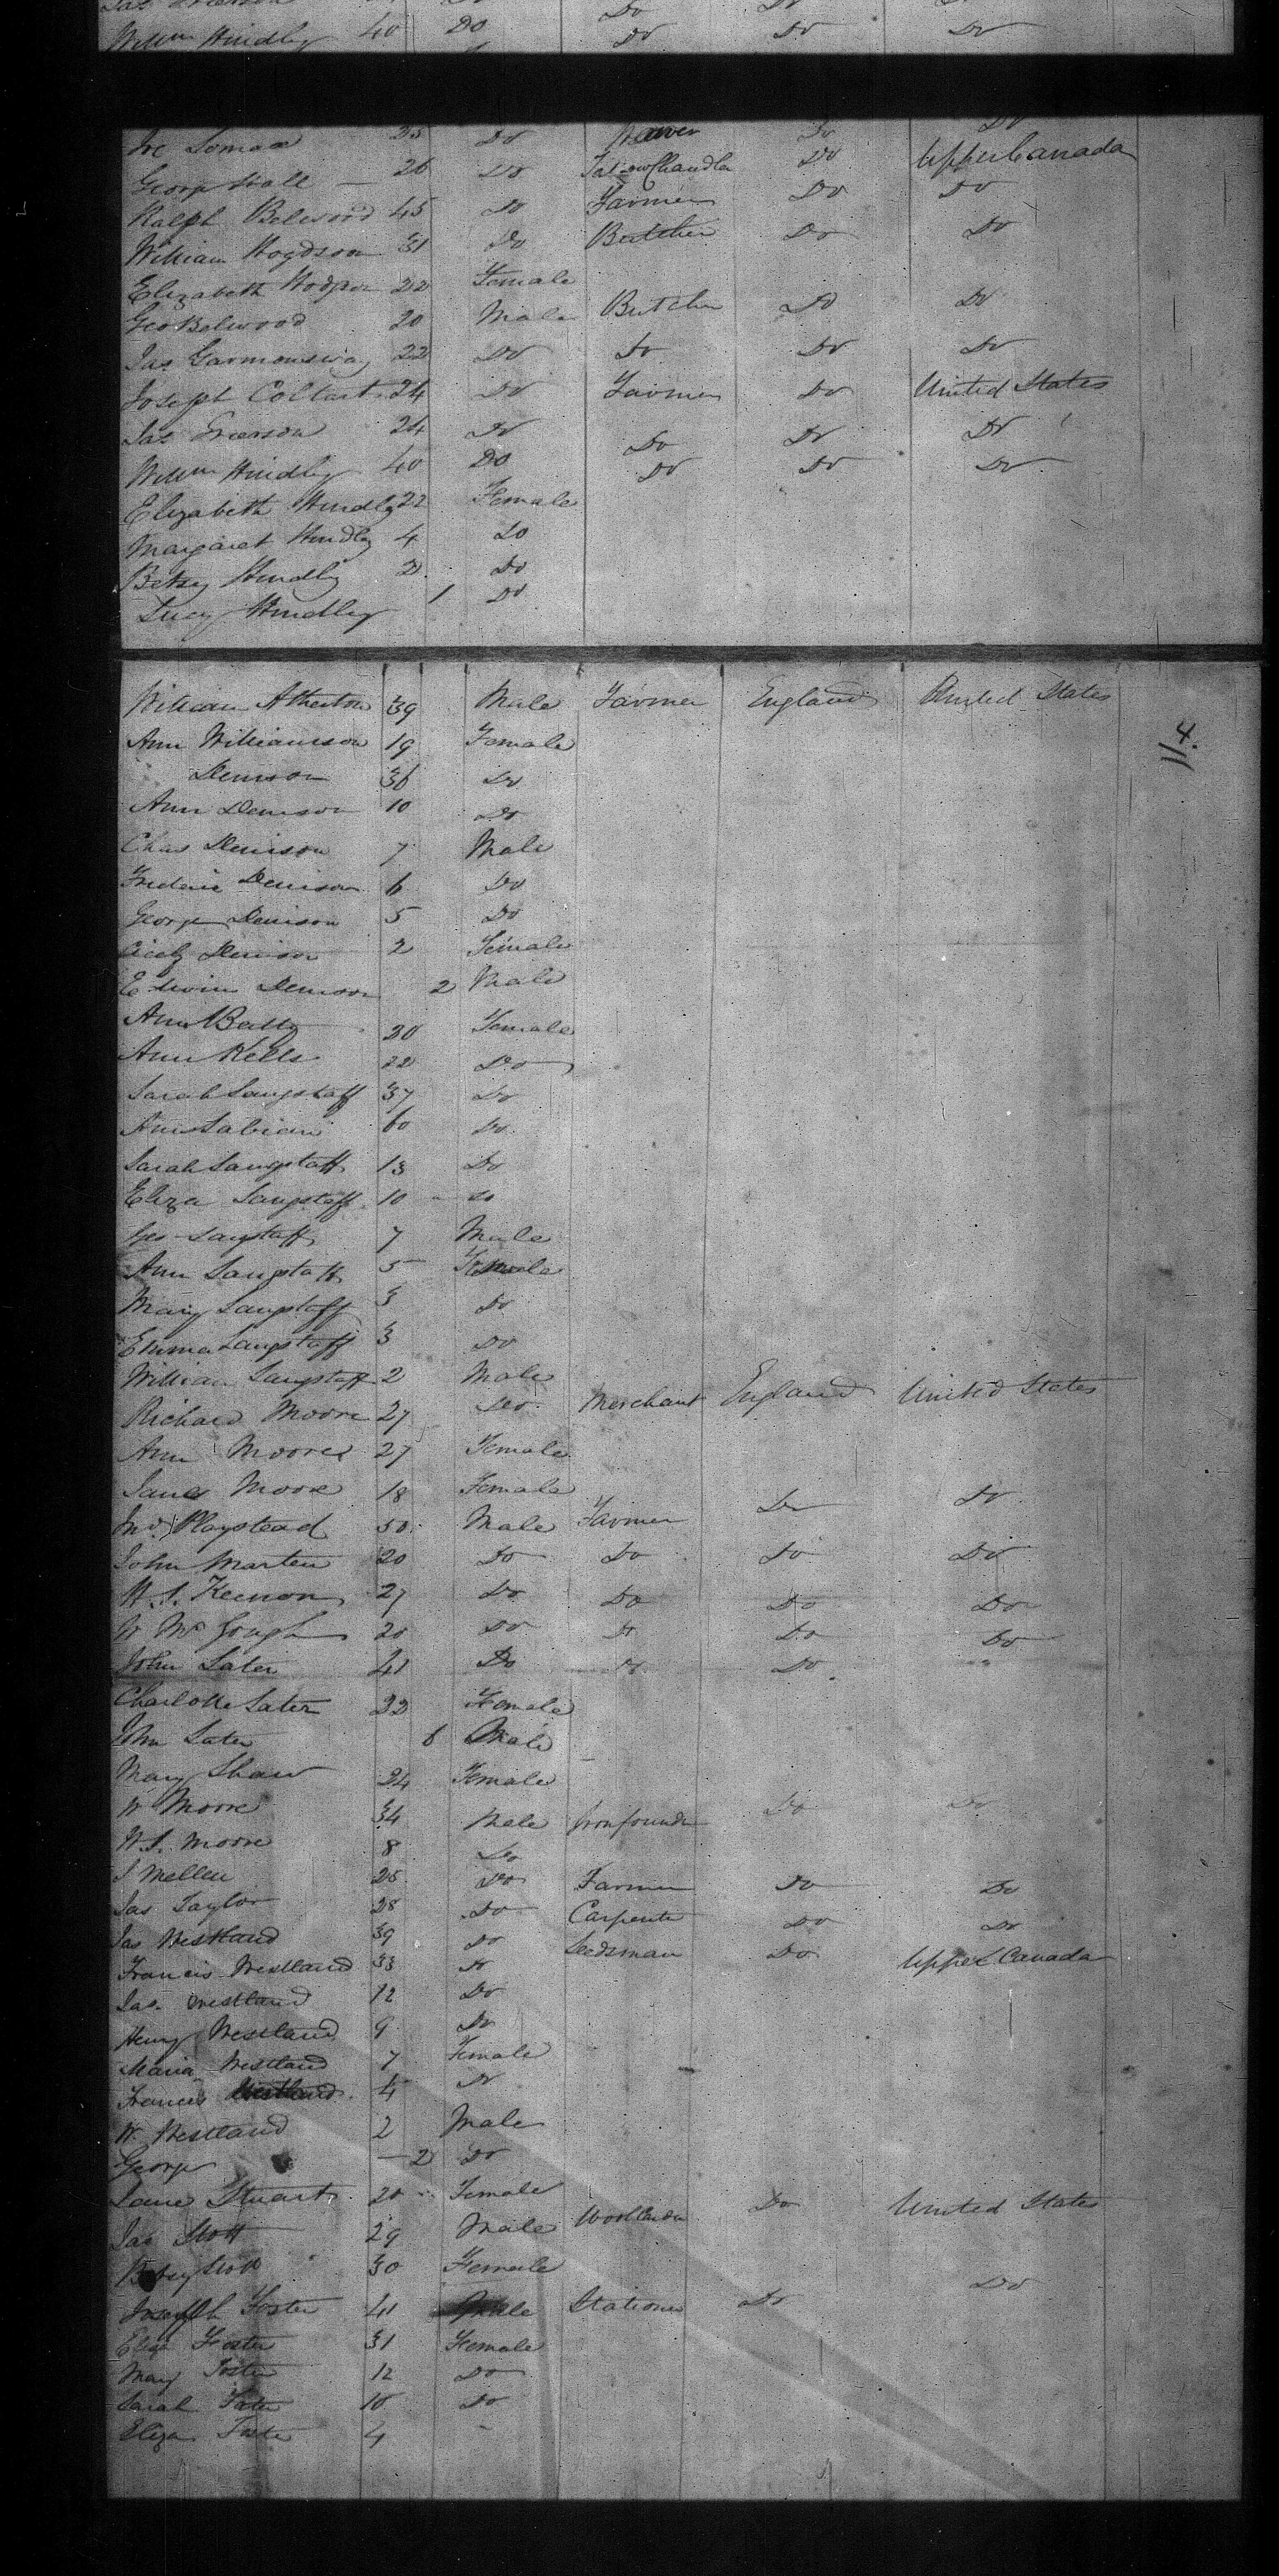 Willm Hindley 40 Do Do Do Do
Jne Lomax 25 Do Weaver Do Do
George Hall — 26 Do Tallow Chandler Do Upper Canada
Ralph Belwood 45 Do Farmer Do Do
William Hogdson 31 Do Butcher Do Do
Elizabeth Hodgson 22 Female
Geo Belwood 20 Male Butcher Do Do
Jas Garmonsway 22 Do Do Do Do
Joseph Coltart 24 Do Farmer Do United States
Jas Grierson 24 Do Do Do Do
Willm Hindley 40 Do Do Do Do
Elizabeth Hindley 22 Female
Margaret Hindley 4 Do
Betsy Hindley 2 Do
Lucy Hindley 1 Do
William Atherton 39 Male Farmer England United States
114.
Ann Williamson 19 Female
Denison 36 Do
Ann Denison 10 Do
Chas Denison 7 Male
Frederic Denison 6 Do
George Denison 5 Do
Cicely Denison 2 Female
Edwin Denison 2 Male
Ann Batty 30 Female
Ann Kells 22 Do
Sarah Langstaff 37 Do
Ann 60 Do
Sarah Langstaff 13 Do
Eliza Langstaff 10 Do
Geo Langstaff 7 Male
Ann Langstaff 5 Female
Mary Langstaff 3 Do
Emma Langstaff 3 Do
William Langstaff 2 Male
Richard Moore 27 Do Merchant England United States
Ann Moore 27 Female
Jane Moore 18 Female
Jno Playstead 50 Male Farmer Do Do
John Marten 20 Do Do Do Do
W. S. Keenon 27 Do Do Do Do
W Mc Gough 20 Do Do Do Do
John Later 41 Do Do Do
Charlotte Later 22 Female
John Later 6 Male
Mary Shaw 24 Female
W Moore 34 Male Ironfounder Do Do
W. S. Moore 8 Do
J Mellen 25 Do Farmer Do Do
Jas Taylor 28 Do Carpenter Do Do
Jas Westland 39 Do Seedsman Do Upper Canada
Francis Westland 33 Do
Jas. Westland 12 Do
Henry Westland 9 Do
Maria Westland 7 Female
Frances Westland 4 Do
W. Westland 2 Male
George — 2 Do
Jane Stuart 20 Female
Jas Stott 29 Male Do United States
Betsy Stott 30 Female
Joseph Foster 41 Male Stationer Do Do
Eliza Foster 31 Female
Mary Foster 12 Do
Sarah Foster 10 Do
Eliza Foster 4